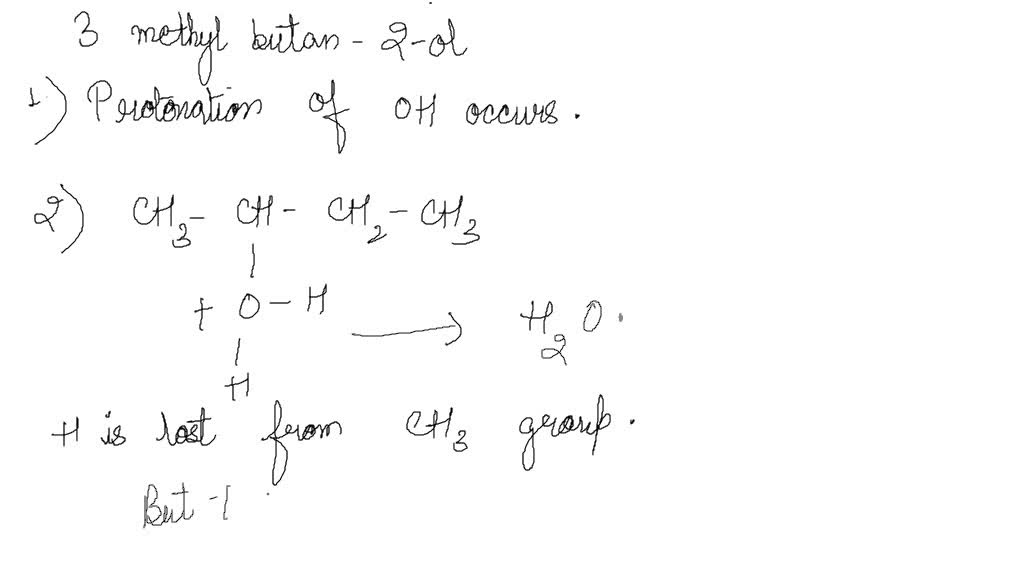 3 methyl butan - 2-ol
1) Protonation of OH occurs.
2) CH3 - CH - CH2 - CH3
|
+ O - H → H2O.
|
H
H is lost from CH3 group.
But -1